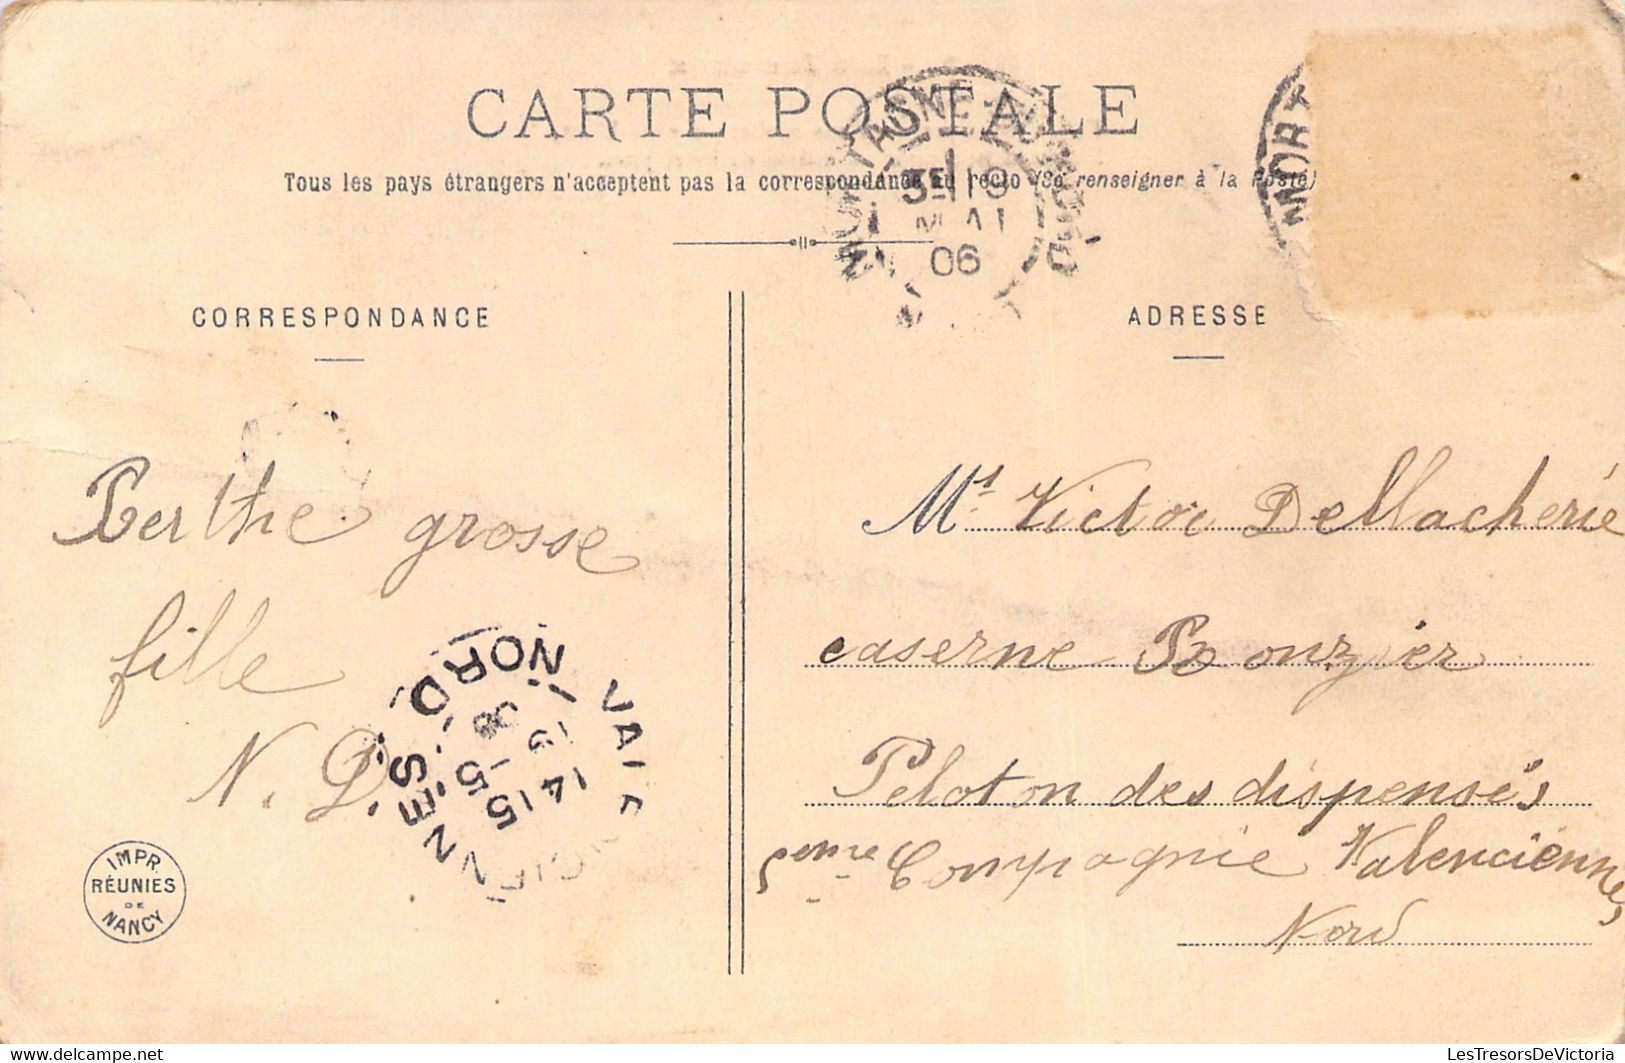 CARTE POSTALE
Tous les pays étrangers n'acceptent pas la correspondance au recto (Se renseigner à la Poste)
3E 19
MAI
06
CORRESPONDANCE
ADRESSE
Berthe grosse
fille
N. D.
Mr. Victor Dellacherie
caserne Ronzier
Peloton des dispensés
5eme Compagnie Valenciennes
Nord
VALENCIENNES
NORD
14/5
19 -5
06
IMPR.
RÉUNIES
DE
NANCY
Delcampe.net
LesTresorsDeVictoria